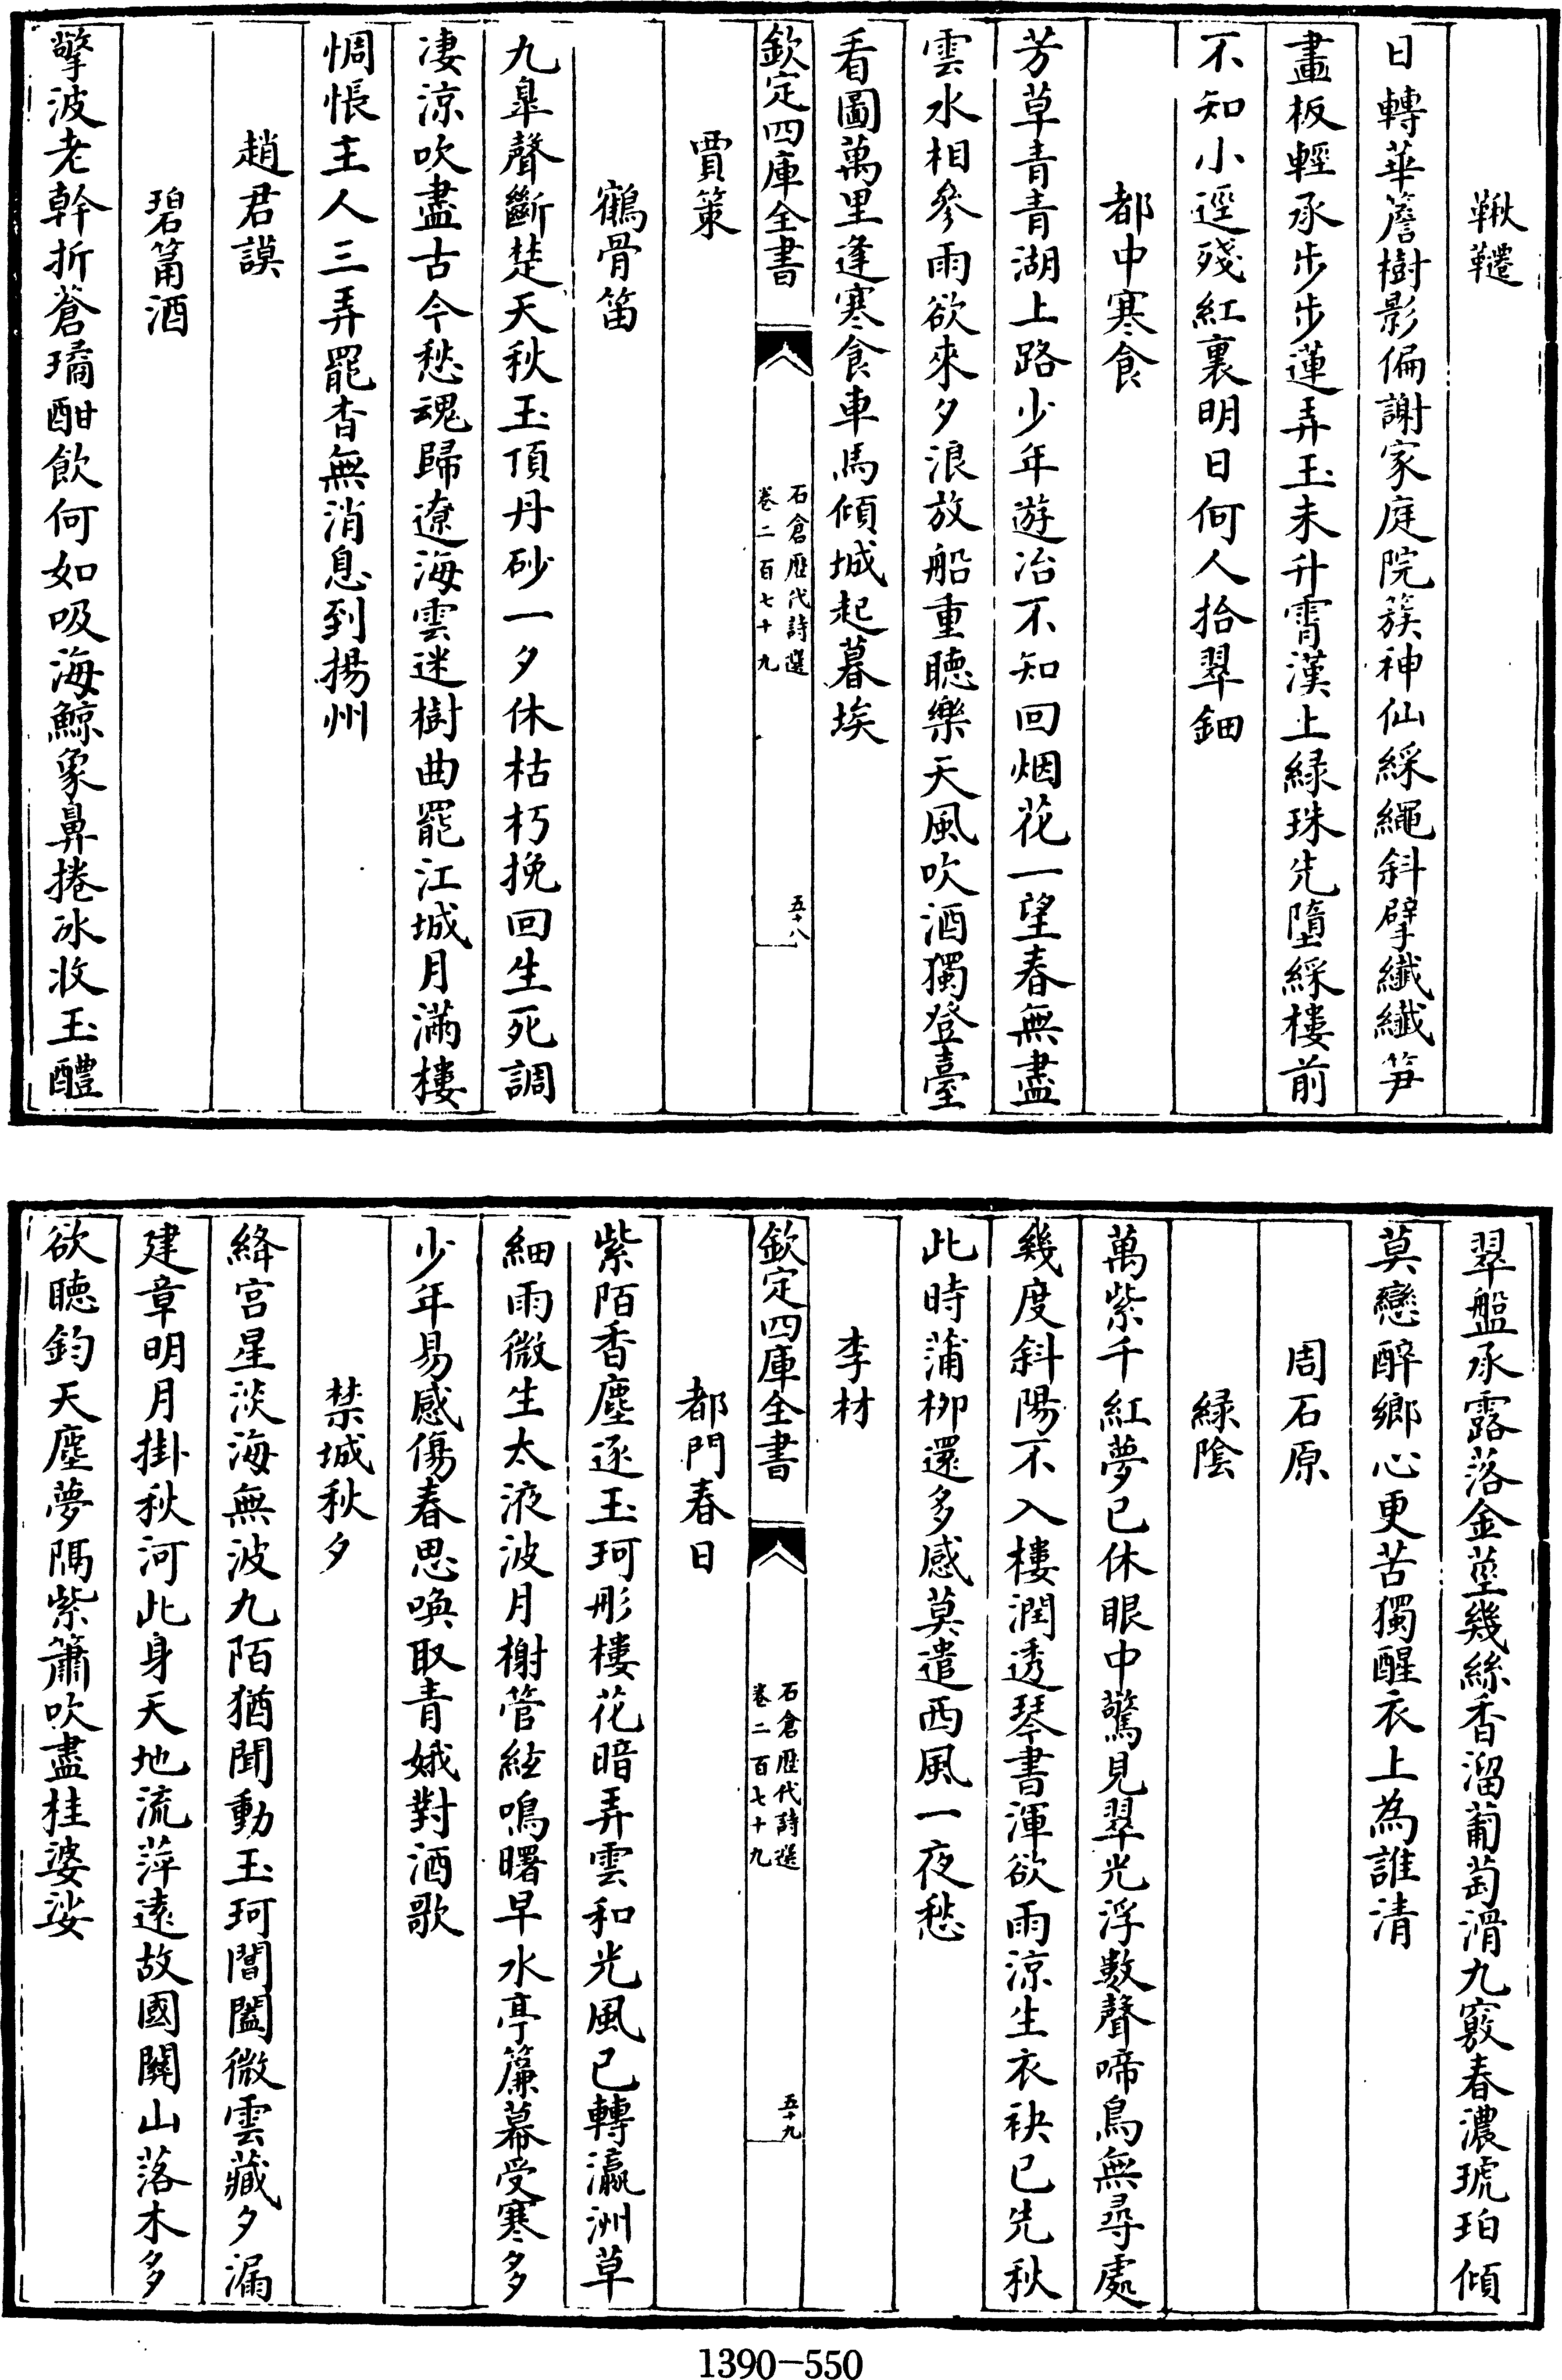 鞦韆
日轉華簷樹影偏謝家庭院簇神仙綵繩斜擘纖纖笋
畫板輕承步步蓮弄玉未升霄漢上緑珠先墮綵樓前
不知小逕殘紅裏明日何人拾翠鈿
都中寒食
芳草青青湖上路少年遊冶不知回烟花一望春無盡
雲水相參雨欲來夕浪放船重聽樂天風吹酒獨登臺
看圖萬里逢寒食車馬傾城起暮埃
欽定四庫全書
石倉歷代詩選
卷二百七十九
五十八
賈策
鶴骨笛
九臯聲斷楚天秋玉頂丹砂一夕休枯朽挽回生死調
凄涼吹盡古今愁魂歸遼海雲迷樹曲罷江城月滿樓
惆悵主人三弄罷杳無消息到揚州
趙君謨
碧筩酒
擎波老幹折蒼璚酣飲何如吸海鯨象鼻捲冰收玉醴
翠盤承露落金莖幾絲香溜葡萄滑九竅春濃琥珀傾
莫戀醉鄉心更苦獨醒衣上為誰清
周石原
緑陰
萬紫千紅夢已休眼中驚見翠光浮數聲啼鳥無尋處
幾度斜陽不入樓潤透琴書渾欲雨涼生衣袂已先秋
此時蒲柳還多感莫遣西風一夜愁
李材
欽定四庫全書
石倉歷代詩選
卷二百七十九
五十九
都門春日
紫陌香塵逐玉珂彤樓花暗弄雲和光風已轉瀛洲草
細雨微生太液波月榭管絃鳴曙早水亭簾幕受寒多
少年易感傷春思喚取青娥對酒歌
禁城秋夕
絳宮星淡海無波九陌猶聞動玉珂閶闔微雲藏夕漏
建章明月掛秋河此身天地流萍遠故國關山落木多
欲聽鈞天塵夢隔紫簫吹盡桂婆娑
1390-550